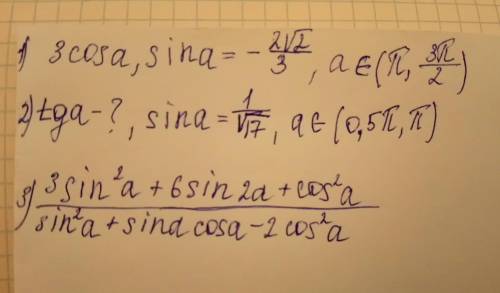 1) 3cosa, sina = -2√2/3, a∈(π, 3π/2)
2) tga-?, sina = 1/√17, a∈(0,5π, π)
3) (3sin²a + 6sin2a + cos²a)/(sin²a + sina cosa - 2cos²a)